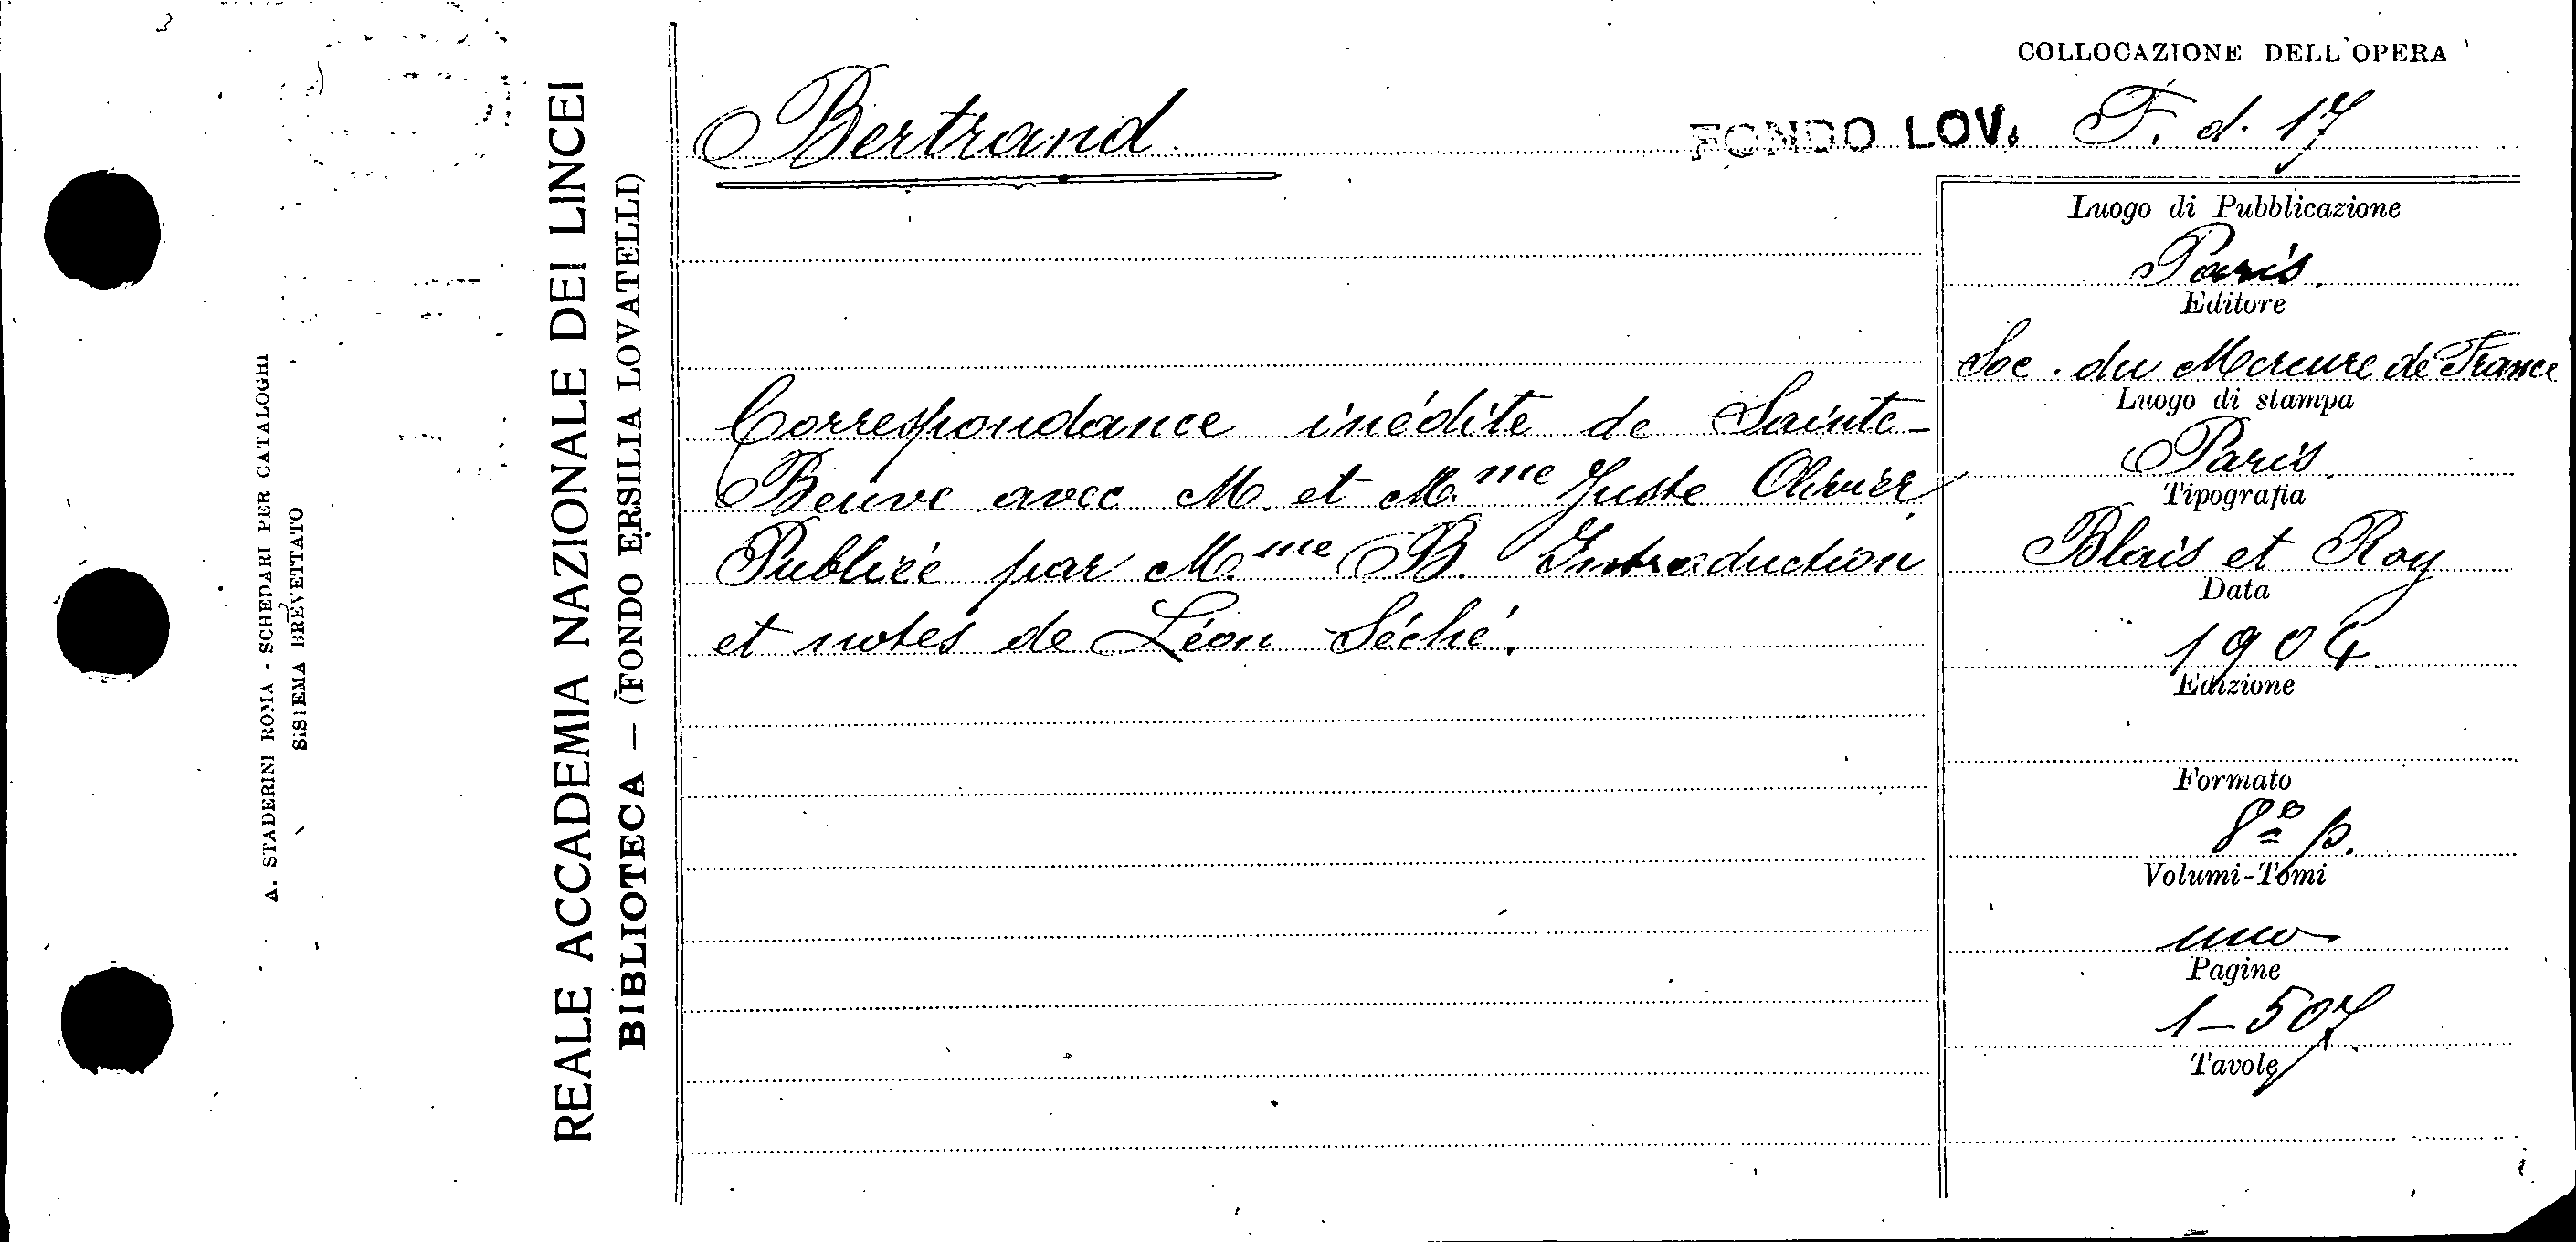 COLLOCAZIONE DELL'OPERA
Bertrand
FONDO LOV. F. d. 17
Correspondance inédite de Sainte-
Beuve avec M. et M.me Juste Olivier
Publiée par M.me B. Introduction
et notes de Léon Séché.
Luogo di Pubblicazione
Paris
Editore
Soc. du Mercure de France
Luogo di stampa
Paris
Tipografia
Blais et Roy
Data
1904
Edizione
Formato
8º p.
Volumi-Tomi
uno
Pagine
1-507
Tavole
REALE ACCADEMIA NAZIONALE DEI LINCEI
BIBLIOTECA — (FONDO ERSILIA LOVATELLI)
A. STADERINI ROMA - SCHEDARI PER CATALOGHI
SISTEMA BREVETTATO